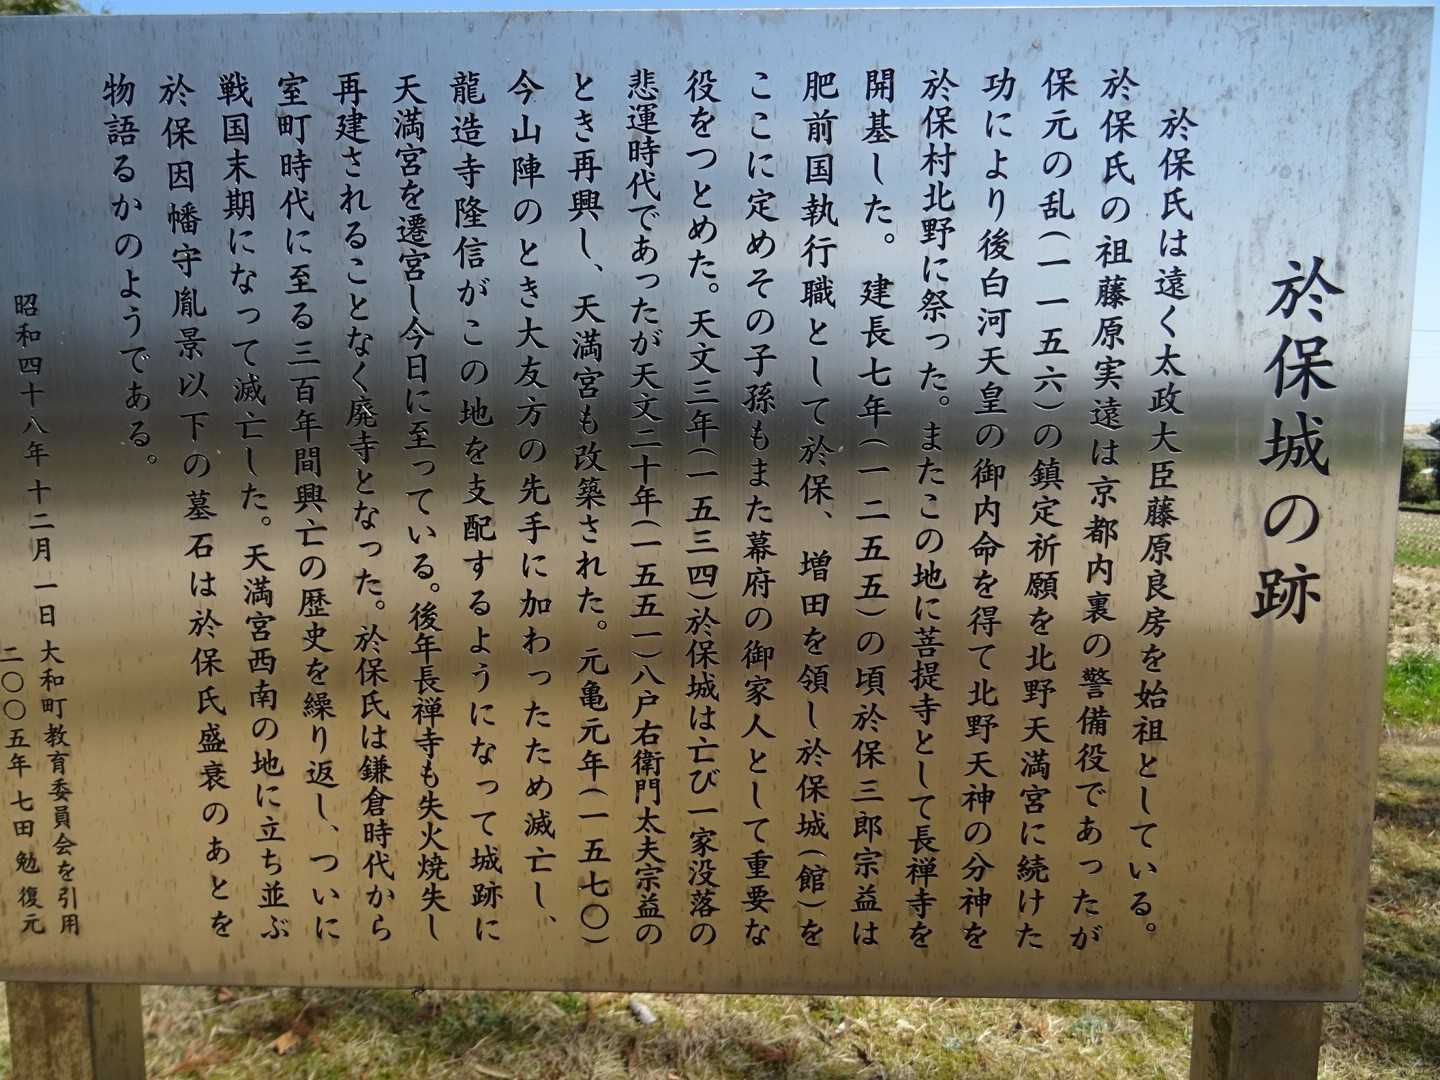 於保城の跡
於保氏は遠く太政大臣藤原良房を始祖としている。
於保氏の祖藤原実遠は京都内裏の警備役であったが
保元の乱(一一五六)の鎮定祈願を北野天満宮に続けた
功により後白河天皇の御内命を得て北野天神の分神を
於保村北野に祭った。またこの地に菩提寺として長禅寺を
開基した。建長七年(一二五五)の頃於保三郎宗益は
肥前国執行職として於保、増田を領し於保城(館)を
ここに定めその子孫もまた幕府の御家人として重要な
役をつとめた。天文三年(一五三四)於保城は亡び一家没落の
悲運時代であったが天文二十年(一五五一)八戸右衛門太夫宗益の
とき再興し、天満宮も改築された。元亀元年(一五七〇)
今山陣のとき大友方の先手に加わったため滅亡し、
龍造寺隆信がこの地を支配するようになって城跡に
天満宮を遷宮し今日に至っている。後年長禅寺も失火焼失し
再建されることなく廃寺となった。於保氏は鎌倉時代から
室町時代に至る三百年間興亡の歴史を繰り返し、ついに
戦国末期になって滅亡した。天満宮西南の地に立ち並ぶ
於保因幡守胤景以下の墓石は於保氏盛衰のあとを
物語るかのようである。
昭和四十八年十二月一日大和町教育委員会を引用
二〇〇五年 七田 勉 復元